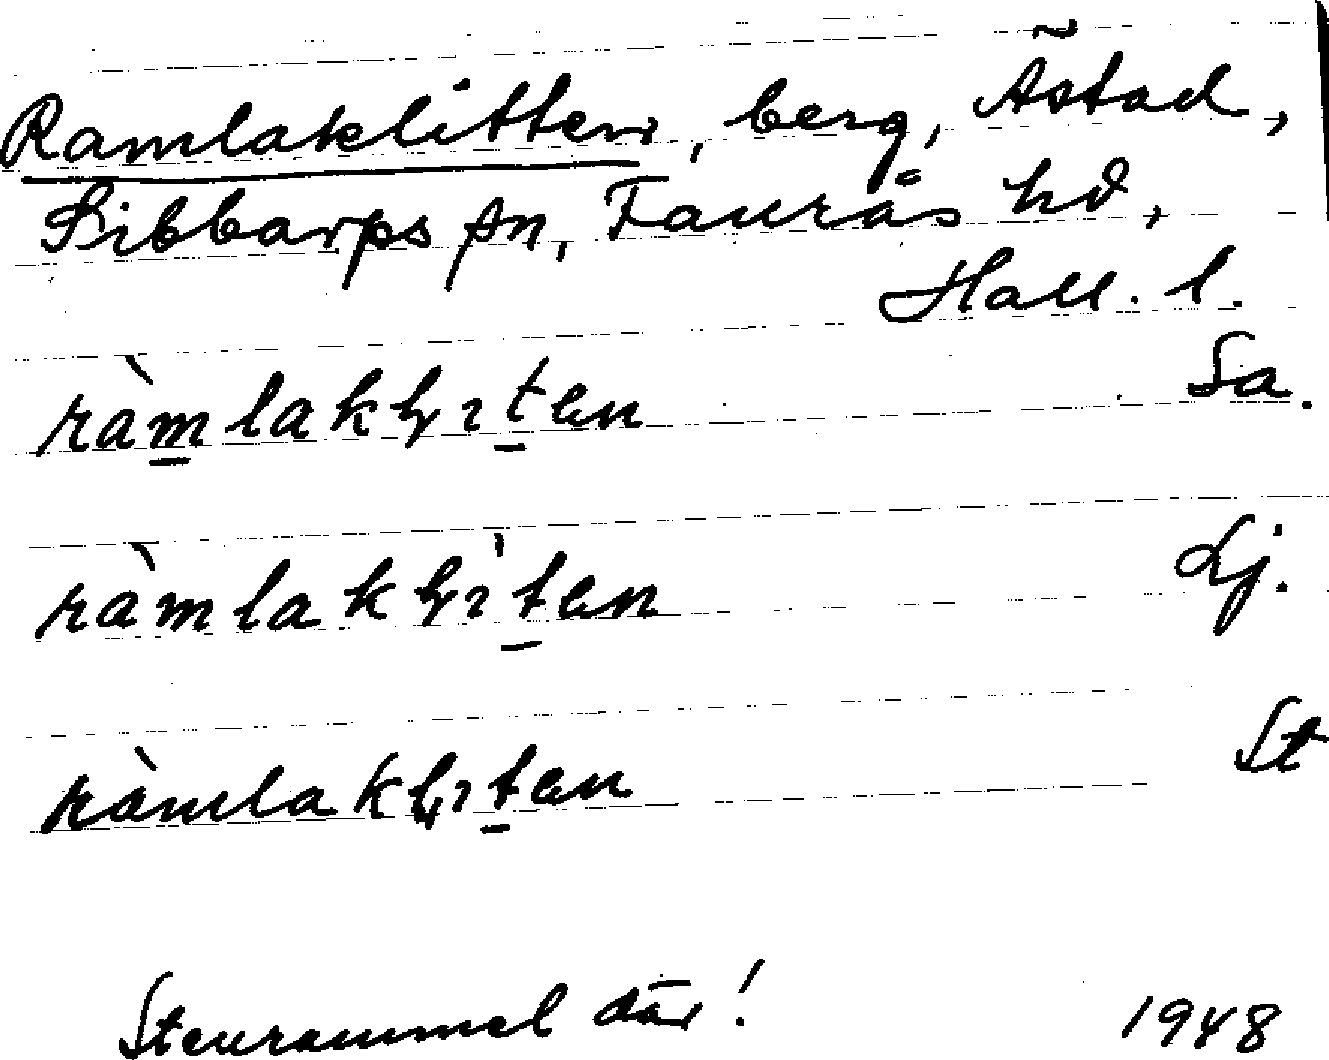 Ramlaklitten, berg, Ästad,
Sibbarps sn, Faurås hd,
Hall. l.
ràmlakļıten Sa.
ràmlakļı̀ten Lj.
ràmlakļıten St
Stenrammel där! 1948